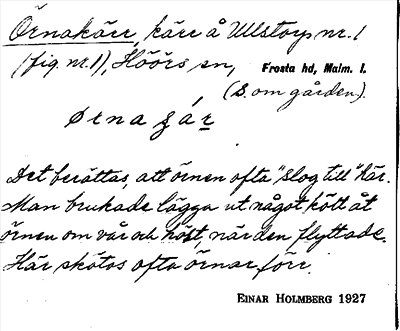 Örnakärr, kärr å Ullstorp nr. 1
(fig. nr. 1), Höörs sn, Frosta hd, Malm. l.
(S. om gården).
Det berättas, att örnen ofta "slog till" här.
Man brukade lägga ut något kött åt
örnen om vår och höst, när den flyttade.
Här sköts ofta örnar förr.
EINAR HOLMBERG 1927